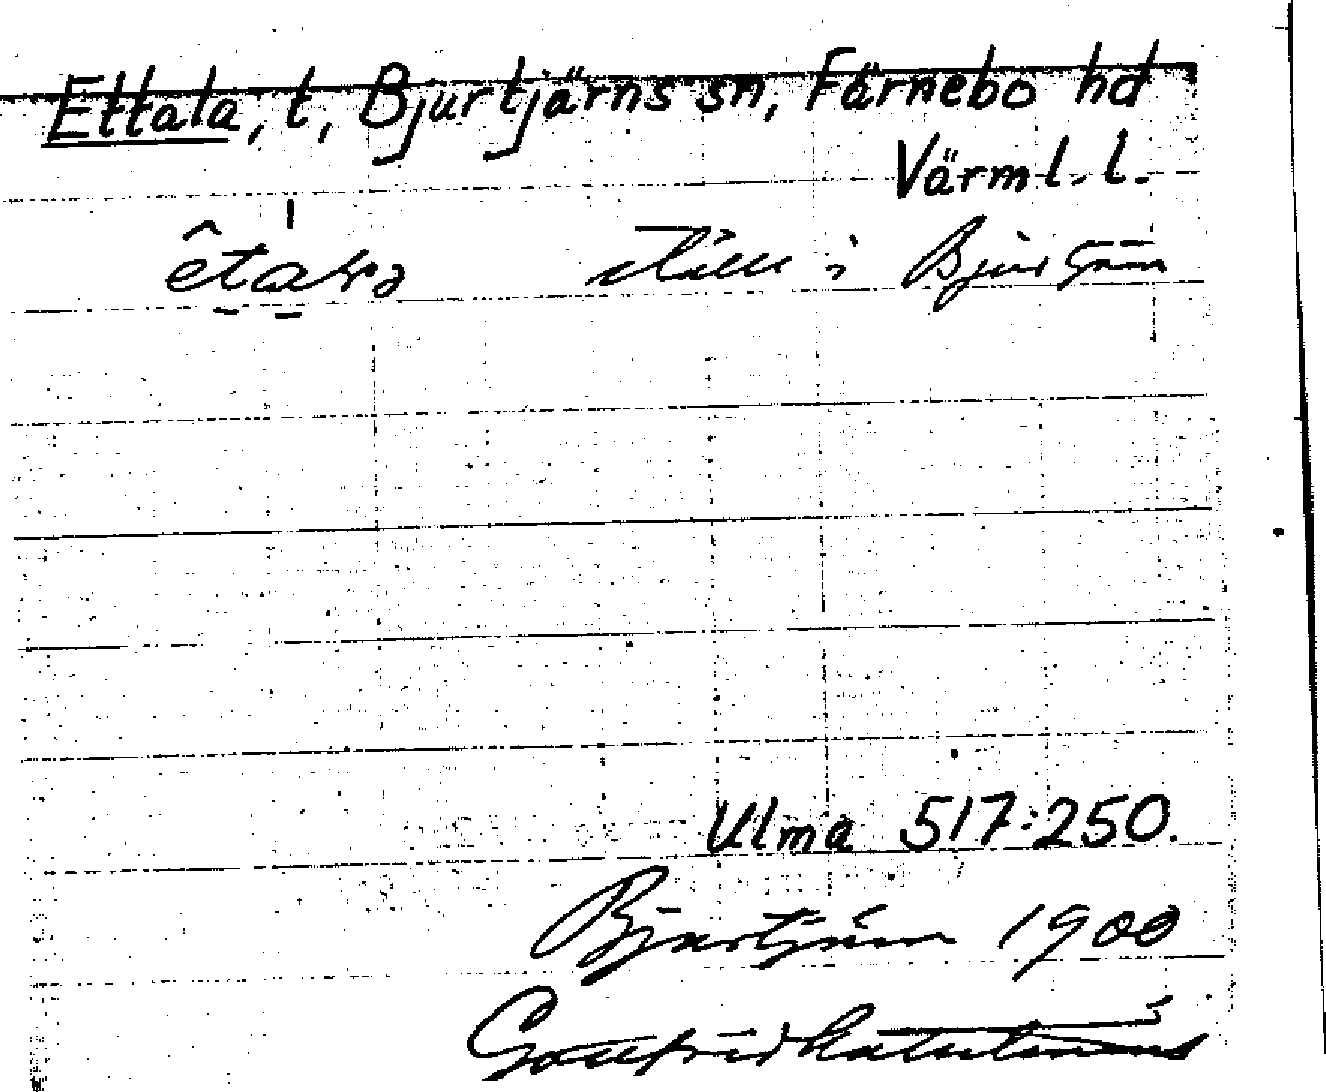 Ettala, t, Bjurtjärns sn, Färnebo hd
Värml. l.
ställe i Bjurtjärn
Ulma 517:250.
Bjurtjärn 1900
Gottfrid Kallstenius